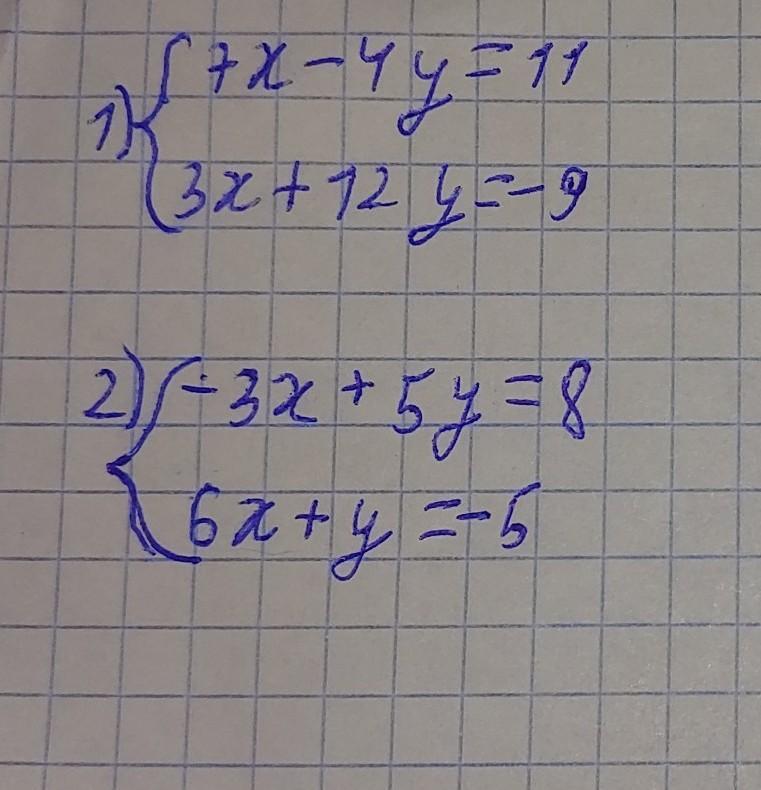 1) { 7x - 4y = 11
3x + 12y = -9
2) { -3x + 5y = 8
6x + y = -5